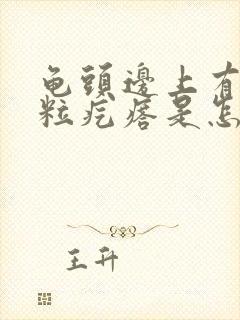 龟頭邊上有
粒疙瘩是怎
王升